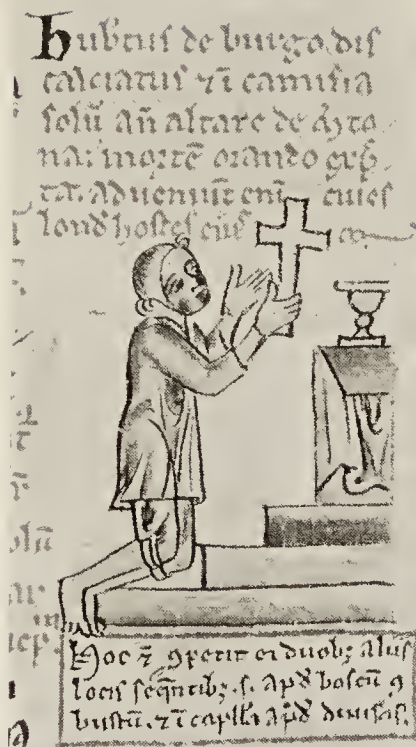 Hub̃tus de burgo. dis
calciatus ⁊ ĩ camisia
solũ añ altare de
na: mortẽ orando
ta. adueniũt enĩ ciues
lond̃ hostes eiꝰ
Hoc ⁊ ꝯpetit ei duobꝫ aliis
locis seq̃ntibꝫ .s. ap̃d boscũ ꝯ
bustũ. ⁊ ĩ capll̃a ap̃d diuisas.